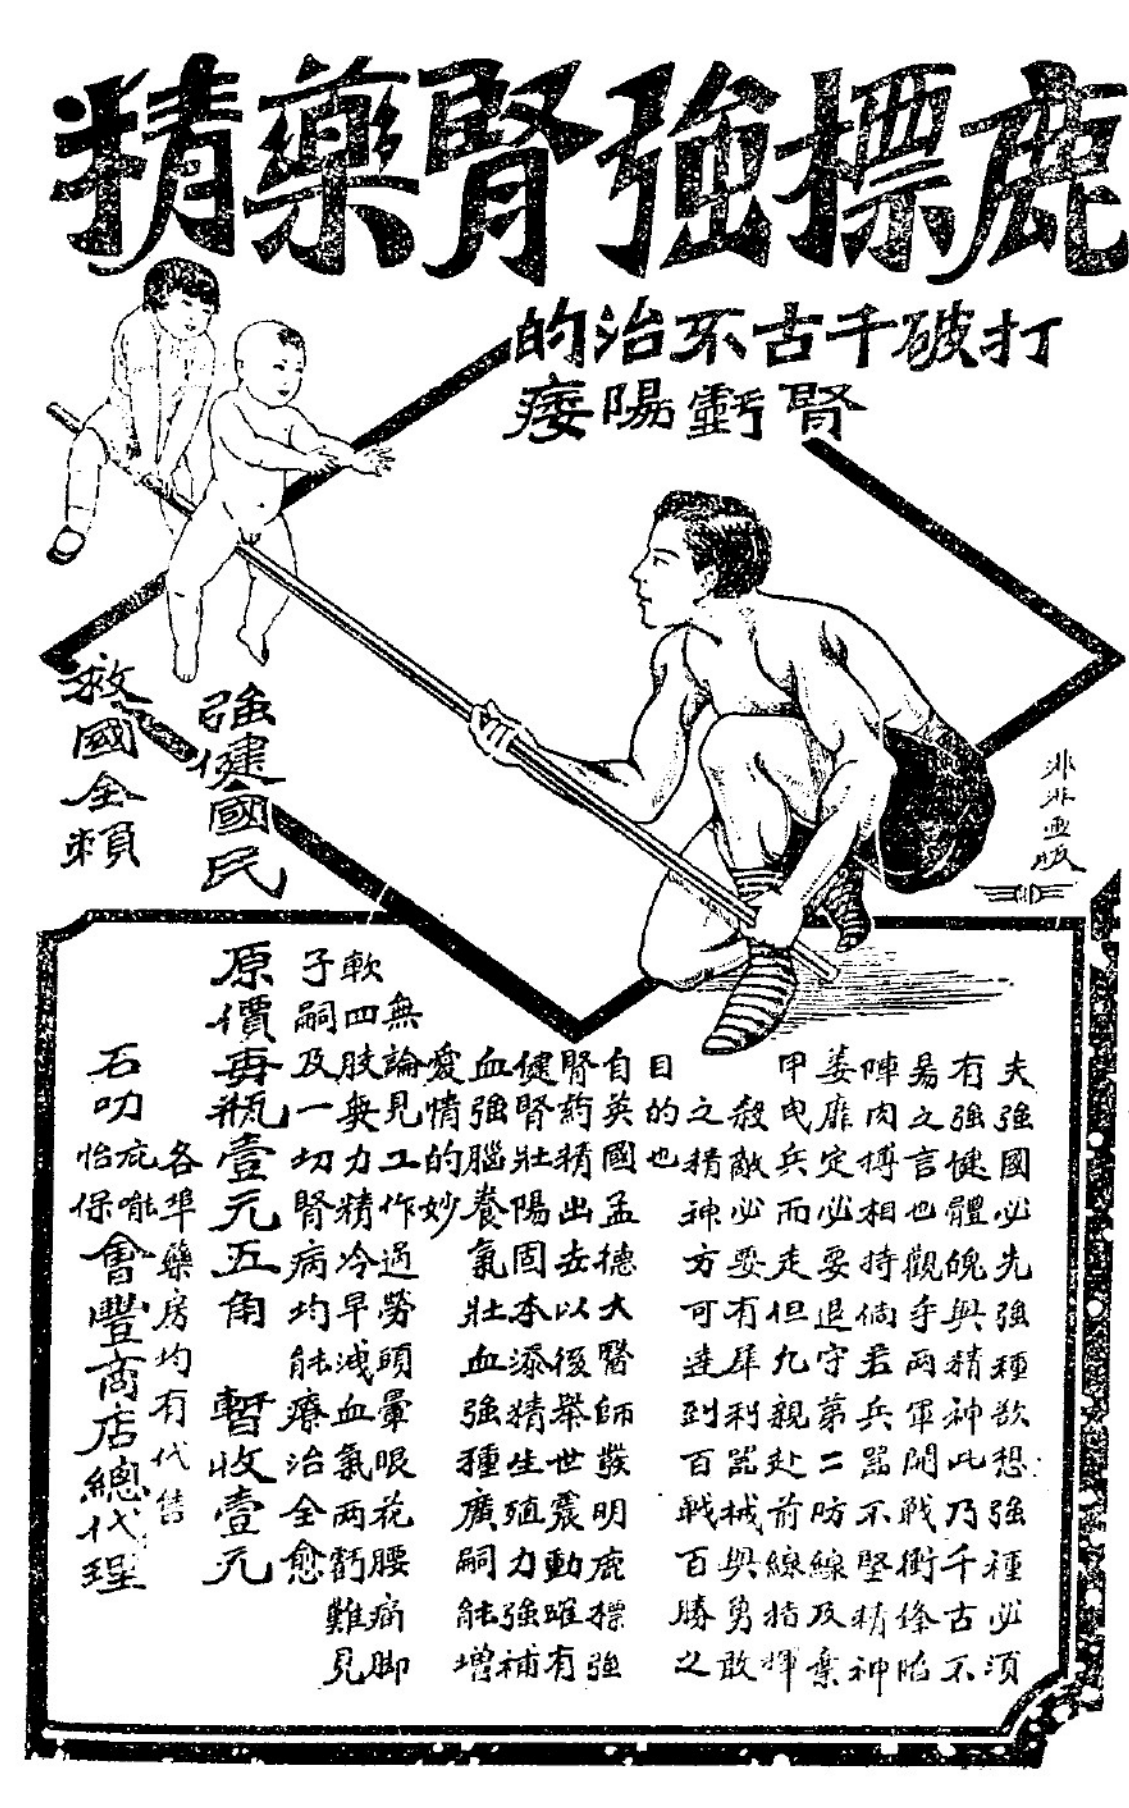 鹿標強腎藥精
打破千古不治的
腎虧陽痿
強健國民
救國全賴
非非画版
夫強國必先強種欲想強種必須
有強健體魄與精神此乃千古不
易之言也觀乎兩軍開戰衝鋒陷
陣肉搏相持倘若兵器不堅精神
萎靡定必要退守第二防線及棄
甲曳兵而走但凡親赴前線指揮
殺敵必要有犀利器械與勇敢
之精神方可達到百戰百勝之
目的也
自英國孟德大醫師發明鹿標強
腎葯精出去以後舉世震動確有
健腎壯陽固本添精生殖力強補
血強腦養氣壯血強種廣嗣能增
愛情的妙
無論見工作過勞頭暈眼花腰痛脚
軟四肢無力精冷早洩血氣兩虧難見
子嗣及一切腎病均能療治全愈
原價每瓶壹元五角 暫收壹元
各埠藥房均有代售
石叻庇能怡保會豐商店總代理